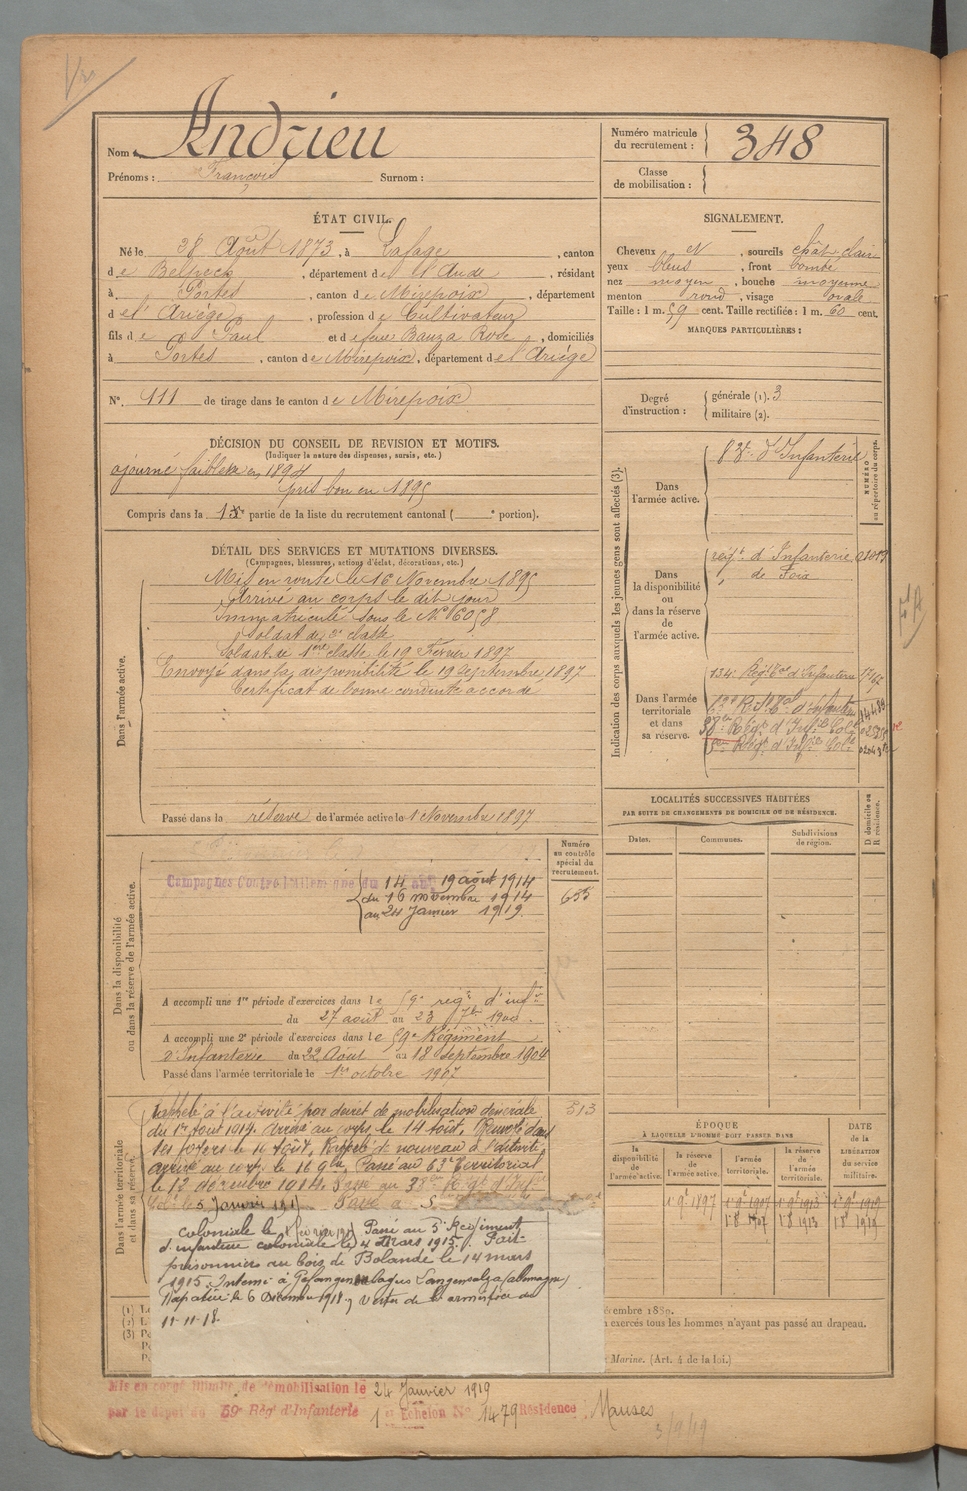 Nom : Andrieu
Prénoms : François Surnom :
Numéro matricule
du recrutement : 348
Classe
de mobilisation :
ÉTAT CIVIL.
Né le 28 Août 1873, à Lafage, canton
de Belpech, département de l'Aude, résidant
à Portes, canton de Mirepoix, département
de l'Ariège, profession de Cultivateur
fils de Paul et de feue Bauza Rose, domiciliés
à Portes, canton de Mirepoix, département de l'Ariège
N°. 111 de tirage dans le canton de Mirepoix
SIGNALEMENT.
Cheveux et, sourcils chât. clair
yeux bleus, front bombé
nez moyen, bouche moyenne
menton rond, visage ovale
Taille : 1 m. 59 cent. Taille rectifiée : 1 m. 60 cent.
MARQUES PARTICULIÈRES :
Degré
d'instruction :
générale (1). 3
militaire (2).
DÉCISION DU CONSEIL DE REVISION ET MOTIFS.
(Indiquer la nature des dispenses, sursis, etc.)
ajourné faiblesse en 1894
pris bon en 1895
Compris dans la 1re partie de la liste du recrutement cantonal ( portion).
DÉTAIL DES SERVICES ET MUTATIONS DIVERSES.
(Campagnes, blessures, actions d'éclat, décorations, etc.)
Dans l'armée active.
Mis en route le 16 Novembre 1895
Arrivé au corps le dit jour
Immatriculé sous le N° 6058
Soldat de 2e classe
Soldat de 1ère classe le 19 Février 1897
Envoyé dans la disponibilité le 19 Septembre 1897
Certificat de bonne conduite accordé
Passé dans la réserve de l'armée active le 1 Novembre 1897
Indication des corps auxquels les jeunes gens sont affectés (3).
NUMÉRO
au répertoire du corps.
Dans
l'armée active.
83e d'Infanterie
Dans
la disponibilité
ou
dans la réserve
de
l'armée active.
régt d'Infanterie
de Foix
Dans l'armée
territoriale
et dans
sa réserve.
134e Régt Tal d'Infanterie
d'Infanterie
38em Régt d'Infie Cole
5em Régt d'Infie Cole
LOCALITÉS SUCCESSIVES HABITÉES
PAR SUITE DE CHANGEMENTS DE DOMICILE OU DE RÉSIDENCE.
Dates.
Communes.
Subdivisions
de région.
D domicile ou
R résidence.
Dans la disponibilité
ou dans la réserve de l'armée active.
Numéro
au contrôle
spécial du
recrutement.
655
Campagnes Contre l'Allemagne du 14 au 19 août 1914
du 16 novembre 1914
au 24 Janvier 1919.
A accompli une 1re période d'exercices dans le 59e régt d'infie
du 27 août au 23 7bre 1900.
A accompli une 2e période d'exercices dans le 59e Régiment
d'Infanterie du 22 Août au 18 Septembre 1904
Passé dans l'armée territoriale le 1er octobre 1907
Dans l'armée territoriale
et dans sa réserve.
313
Rappelé à l'activité par décret de mobilisation générale
du 1er Août 1914. Arrivé au corps le 14 Août, Renvoyé dans
ses foyers le Août, Rappelé de nouveau à l'activité
arrivé au corps le 16 9bre, Passé au 63e Territorial
le 12 décembre 1914. Passé au 38em Régt d'Infie
Cole le 5 Janvier 191 Passé
coloniale le Passé au 5e Régiment
d'infanterie coloniale le 4 Mars 1915. Fait
prisonnier au bois de Bolande le 14 mars
1915. Interné à Langensalza (Allemagne)
Rapatrié le 6 Décembre 1918, vertu de l'armistice du
11-11-18.
ÉPOQUE
À LAQUELLE L'HOMME DOIT PASSER DANS
la
disponibilité
de
l'armée active.
la réserve
de
l'armée active.
l'armée
territoriale.
la réserve
de
l'armée
territoriale.
DATE
de la
LIBÉRATION
du service
militaire.
écembre 1889.
n exercés tous les hommes n'ayant pas passé au drapeau.
Marine. (Art. 4 de la loi.)
Mis en congé illimité de démobilisation le 24 Janvier 1919
par le dépôt de 59e Rég d'Infanterie 1er Échelon N° 1479 Résidence : Manses
3/9/19